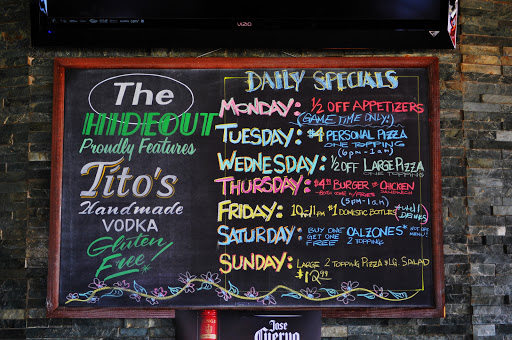 VIZIO
The
HIDEOUT
Proudly Features
Tito's
Handmade
VODKA
Gluten
Free*
DAILY SPECIALS
MONDAY: ½ OFF APPETIZERS
(GAME TIME ONLY!)
TUESDAY: $4 PERSONAL PIZZA
ONE TOPPING
(6pm-1am)
WEDNESDAY: ½ OFF LARGE PIZZA
ONE TOPPING
THURSDAY: BURGER OR CHICKEN
SANDWICH
(5pm-1am)
FRIDAY: $1 DOMESTIC BOTTLES
*well DRINKS
SATURDAY: BUY ONE GET ONE FREE CALZONES*
2 TOPPING
SUNDAY: LARGE 2 TOPPING PIZZA & LG. SALAD
$12.99
Jose
Cuervo